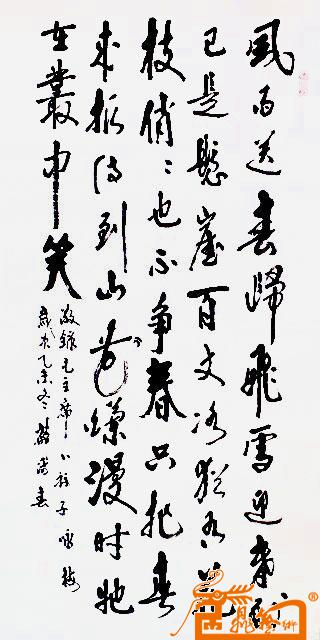 風雨送春歸飛雪迎春到
已是懸崖百丈冰猶有花
枝俏俏也不争春只把春
來报待到山花爛漫時她
在叢中笑
敬錄毛主席卜祘子咏梅
歲次乙未冬